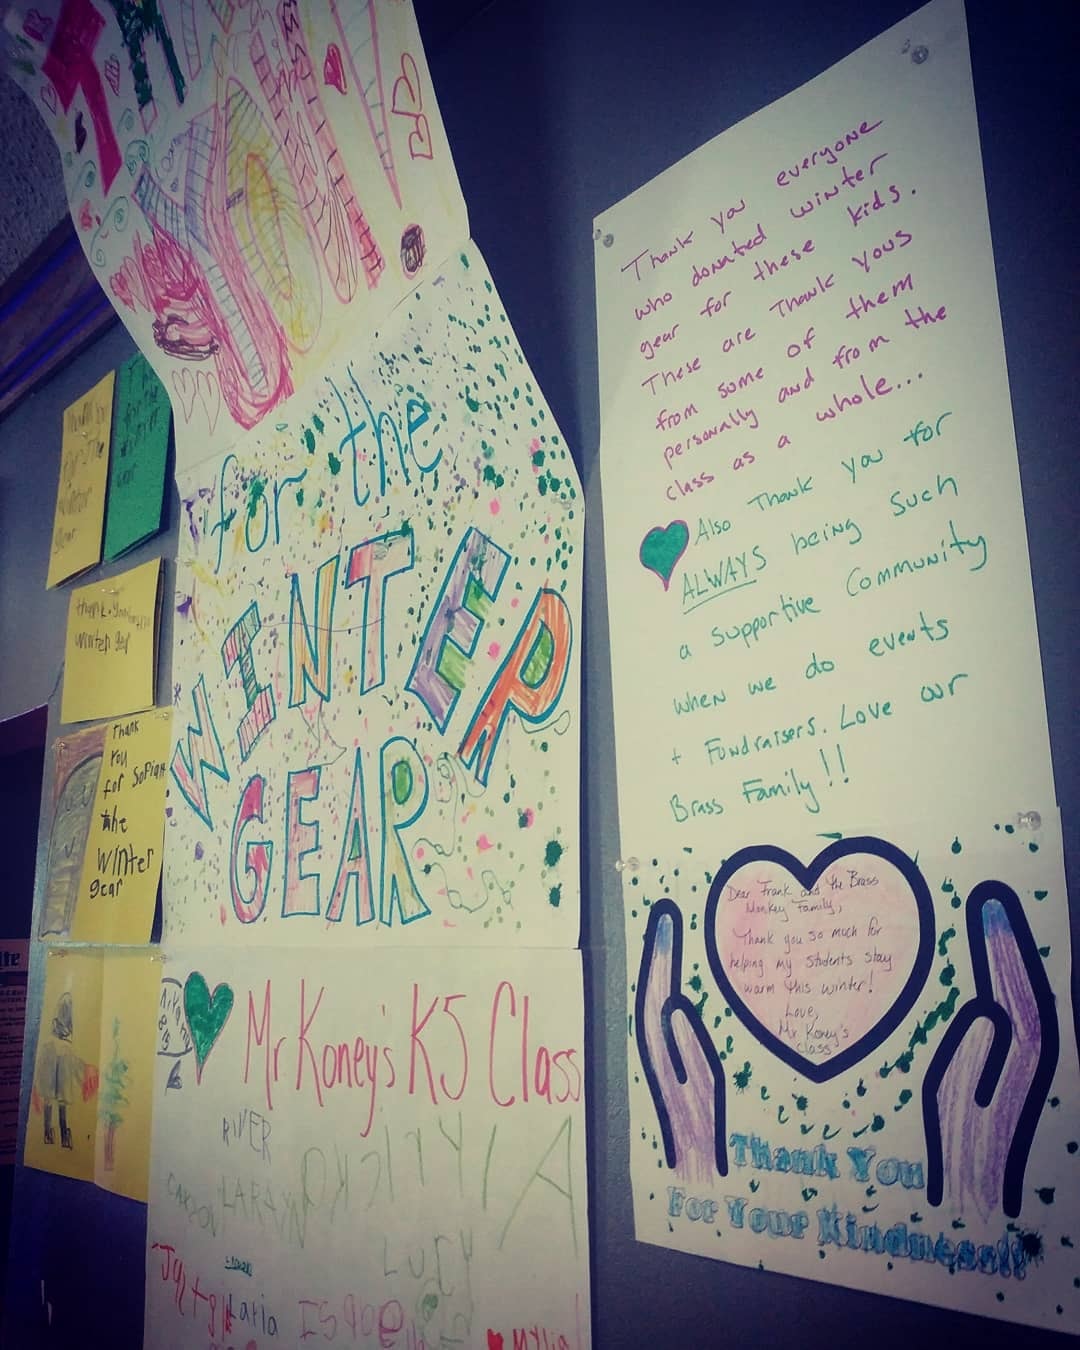 THANK
YOU!
for the
WINTER
GEAR
thank
you
for Sophia
the
winter
gear
thank you
winter gear
Mr Koney's K5 Class
RIVER
LUCY
Thank you everyone
who donated winter
gear for these kids.
These are Thank yous
from some of them
personally and from the
class as a whole...
Also Thank you for
ALWAYS being such
a supportive Community
when we do events
+ Fundraisers. Love our
Brass Family!!
Dear Frank and the Brass
Monkey Family,
Thank you so much for
helping my students stay
warm this winter!
Love,
Mr. Koney's
Class
Thank You
For Your Kindness!!